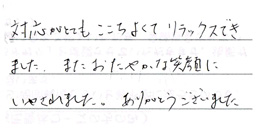 対応がとても ここちよくて リラックスでき
ました。またおだやかな笑顔に
いやされました。ありがとうございました